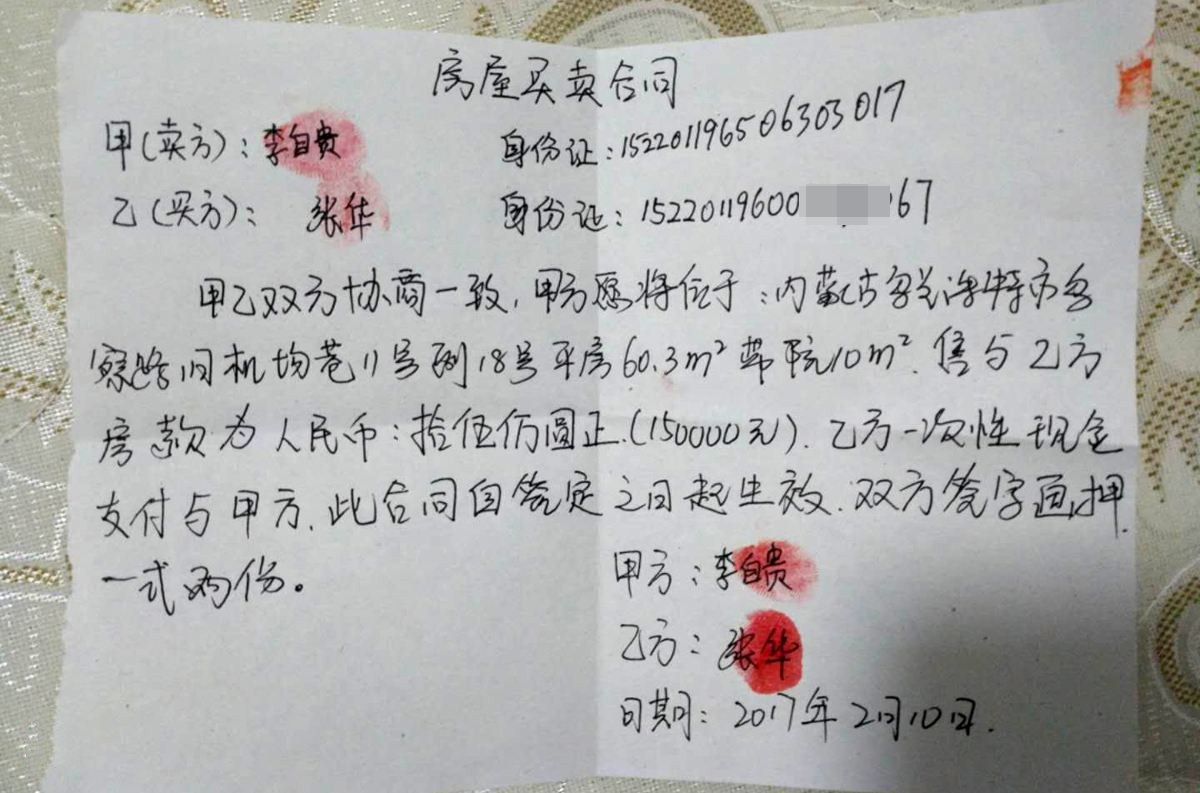 房屋买卖合同
甲(卖方): 李自贵 身份证:152201196506303017
乙(买方): 张华 身份证:15220119600 067
甲乙双方协商一致,甲方愿将位于:内蒙古乌兰浩特市乌
察路旧机场巷11号列18号平房60.3m²带院10m².售与乙方
房款为人民币:拾伍仟圆正.(150000元).乙方一次性现金
支付与甲方.此合同自签定之日起生效.双方签字画押.
一式两份。
甲方:李自贵
乙方:张华
日期:2017年2月10日.